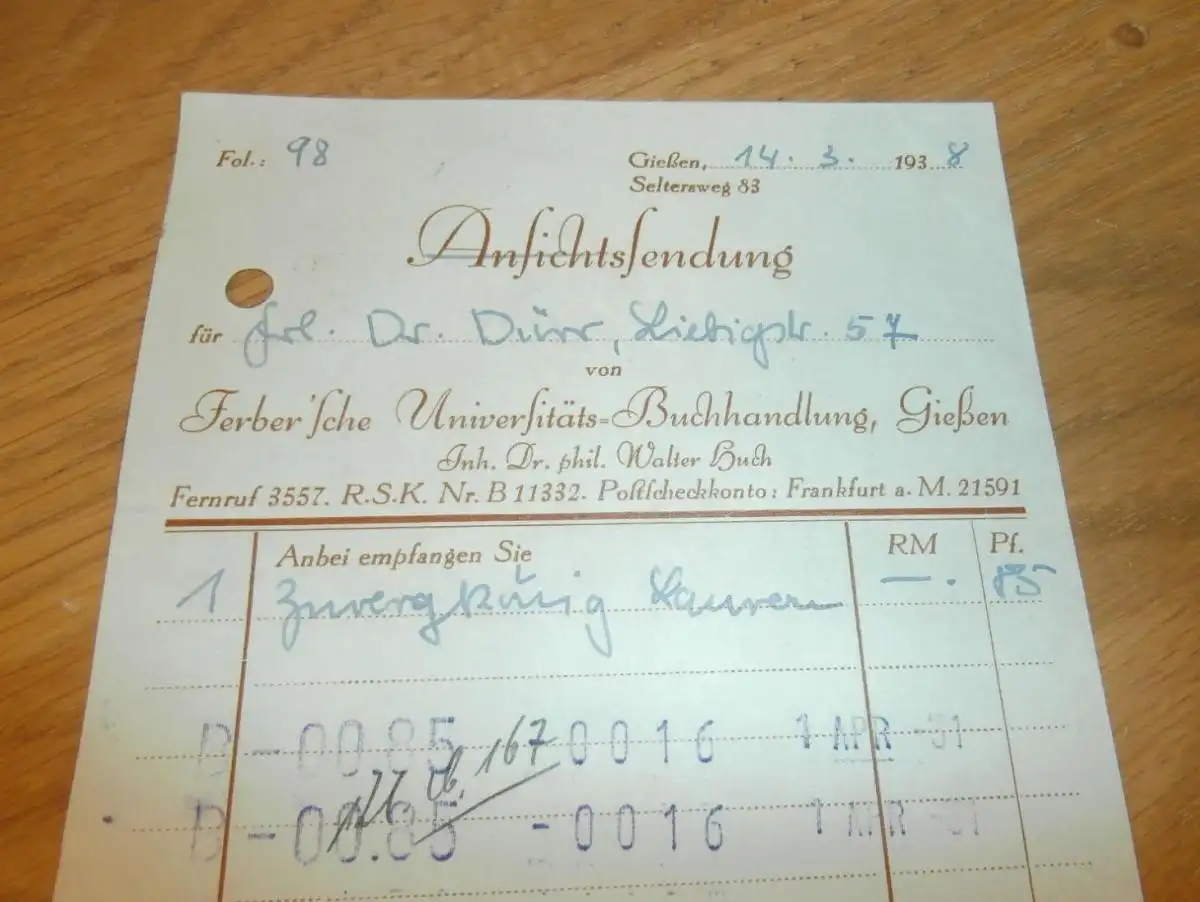 Fol.: 98
Gießen, 14. 3. 1938
Seltersweg 83
Ansichtssendung
für Frl. Dr. Dürr, Liebigstr. 57
von
Ferber'sche Universitäts=Buchhandlung, Gießen
Inh. Dr. phil. Walter Huch
Fernruf 3557. R.S.K. Nr. B 11332. Postscheckkonto: Frankfurt a. M. 21591
Anbei empfangen Sie RM Pf.
1 Zwergkönig Laurin —. 85
-00.85 -0016 1 APR
167
-00.85 -0016 1 APR